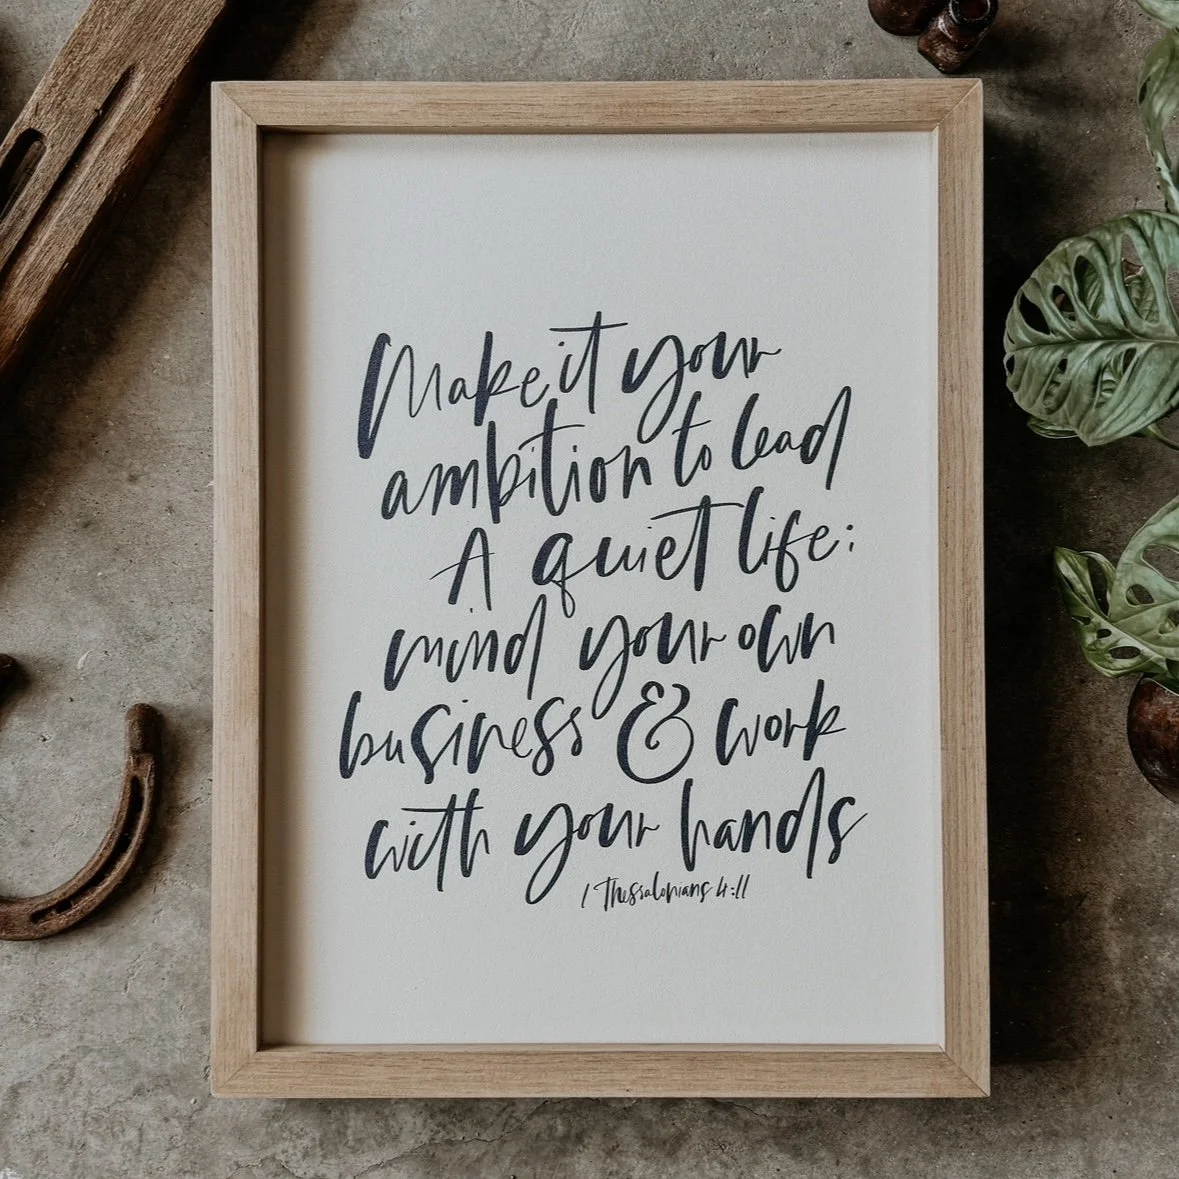 Make it your
ambition to lead
A quiet life:
mind your own
business & work
with your hands
1 Thessalonians 4:11